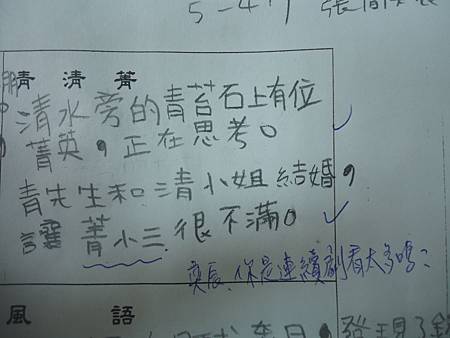 5-4 張
青 清 菁
清水旁的青苔石上有位
菁英,正在思考。
青先生和清小姐結婚,
讓菁小三很不滿。
奕辰、你是連續劇看太多嗎?
風 語
發現了